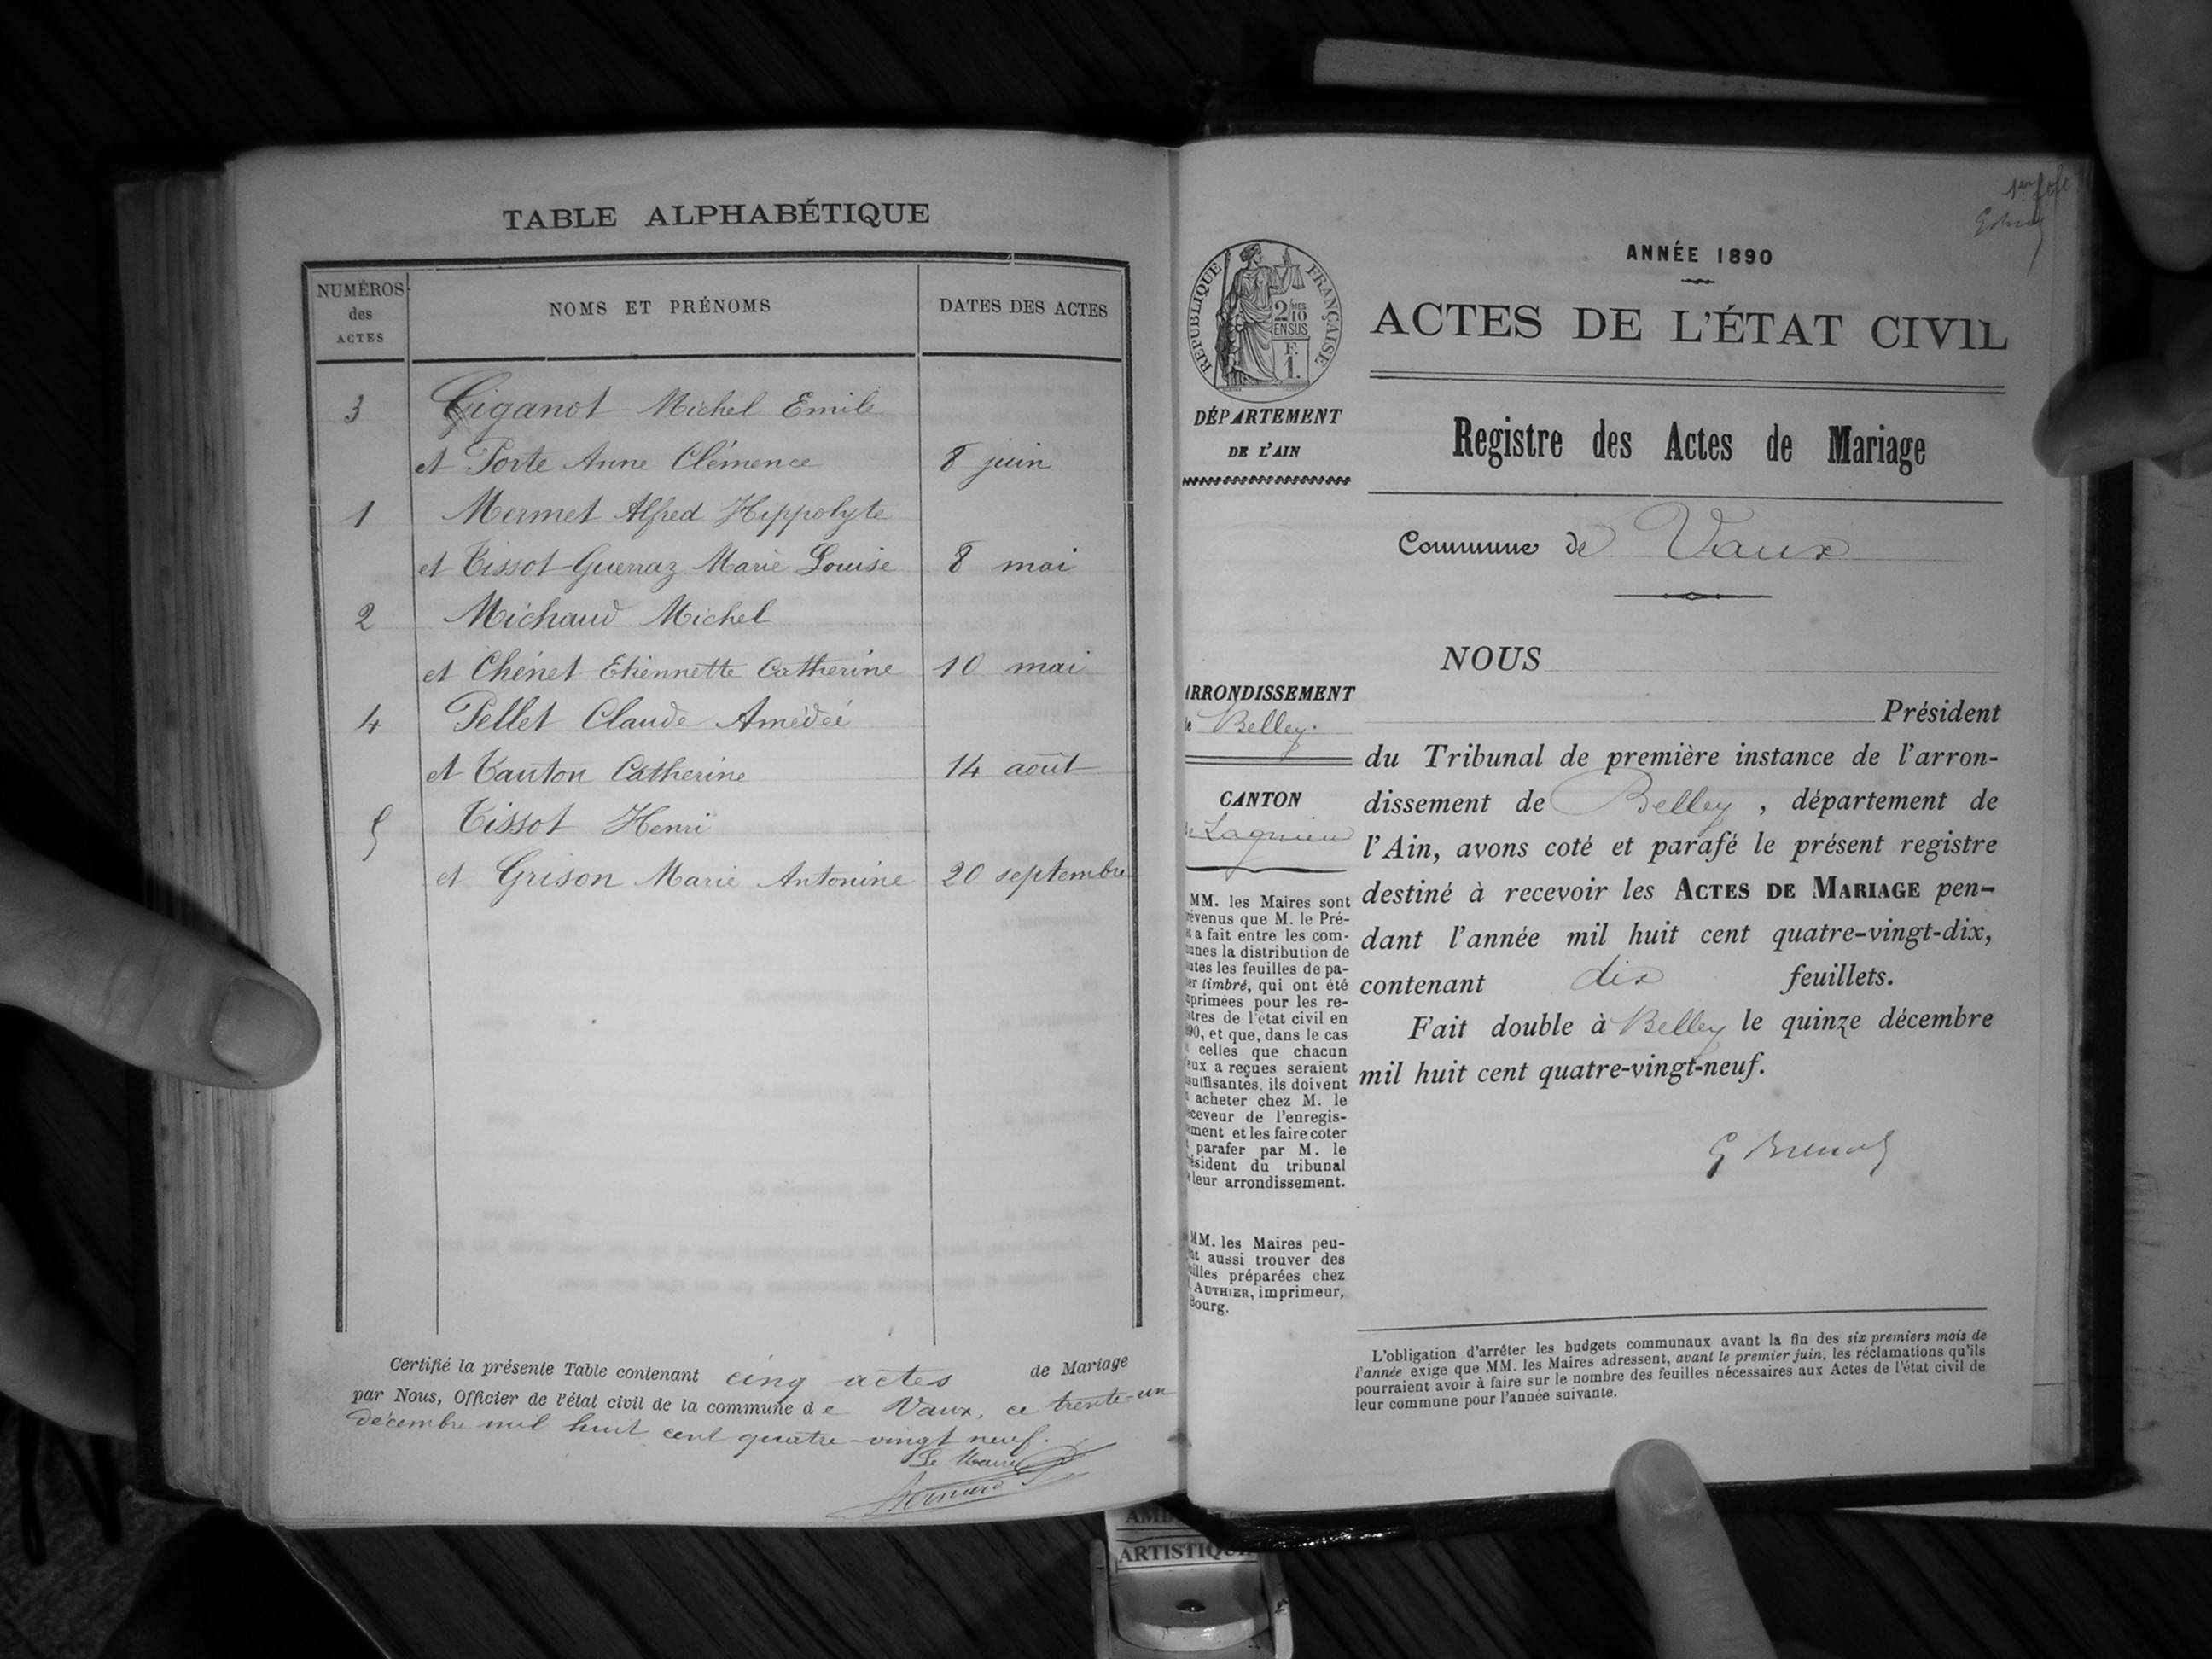 TABLE ALPHABÉTIQUE
NUMÉROS des ACTES
NOMS ET PRÉNOMS
DATES DES ACTES
3 Giganot Michel Emile
et Porte Anne Clémence 8 juin
1 Mermet Alfred Hippolyte
et Tissot-Guerraz Marie Louise 8 mai
2 Michaud Michel
et Chénet Etiennette Catherine 10 mai
4 Pellet Claude Amédée
et Tanton Catherine 14 août
5 Tissot Henri
et Grison Marie Antonine 20 septembre
Certifié la présente Table contenant cinq actes de Mariage
par Nous, Officier de l'état civil de la commune de Vaux, ce trente-un
décembre mil huit cent quatre-vingt neuf.
Le Maire
Bernard
1er
ANNÉE 1890
ACTES DE L'ÉTAT CIVIL
Registre des Actes de Mariage
Commune de Vaux
RÉPUBLIQUE FRANÇAISE
2/10
EN SUS
F.
1.
DÉPARTEMENT
DE L'AIN
ARRONDISSEMENT
de Belley.
CANTON
de Lagnieu
MM. les Maires sont
prévenus que M. le Pré-
fet a fait entre les com-
munes la distribution de
toutes les feuilles de pa-
pier timbré, qui ont été
imprimées pour les re-
gistres de l'état civil en
1890, et que, dans le cas
où celles que chacun
d'eux a reçues seraient
insuffisantes, ils doivent
en acheter chez M. le
receveur de l'enregis-
trement et les faire coter
et parafer par M. le
président du tribunal
de leur arrondissement.
MM. les Maires peu-
vent aussi trouver des
feuilles préparées chez
AUTHIER, imprimeur,
Bourg.
NOUS
Président
du Tribunal de première instance de l'arron-
dissement de Belley, département de
l'Ain, avons coté et parafé le présent registre
destiné à recevoir les ACTES DE MARIAGE pen-
dant l'année mil huit cent quatre-vingt-dix,
contenant dix feuillets.
Fait double à Belley le quinze décembre
mil huit cent quatre-vingt-neuf.
L'obligation d'arrêter les budgets communaux avant la fin des six premiers mois de
l'année exige que MM. les Maires adressent, avant le premier juin, les réclamations qu'ils
pourraient avoir à faire sur le nombre des feuilles nécessaires aux Actes de l'état civil de
leur commune pour l'année suivante.
ARTISTIQUE